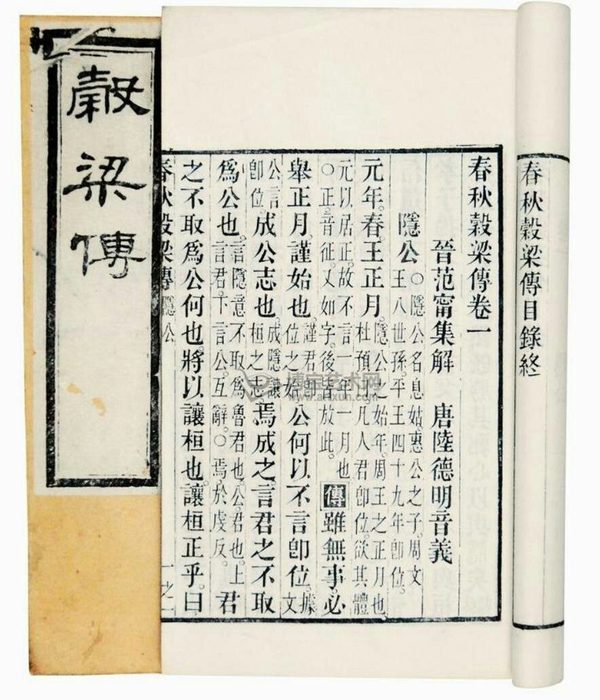 春秋穀梁傳目錄終
春秋穀梁傳卷一
晉范甯集解　唐陸德明音義
隱公　○隱公名息姑惠公之子周文王八世孫。平王四十九年即位。
元年。春王正月。隱公之始年。周王之正月也杜預凡人君即位。欲其體
元以居正。故不言一年一月也○正音征又如字。後皆放此。傳雖無事。必
舉正月。謹始也。謹君即位之始公何以不言卽位。據文
公言卽位成公志也。成隱讓桓之志焉成之。言君之不取
爲公也。言隱意不取爲魯君也。公君也。上言君。下言公。互辭。○焉。於虔反。君
之不取爲公何也。將以讓桓也。讓桓正乎。曰
春秋穀梁傳　隱公　一之一
穀梁傳